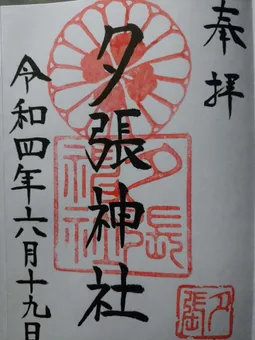 奉拝
夕張神社
夕張神社
令和四年六月十九日
夕張